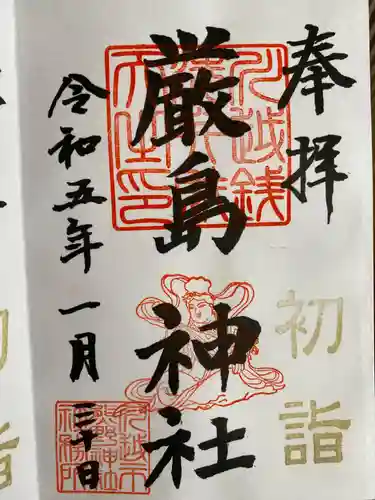 奉拝
初詣
厳島神社
令和五年一月三十日